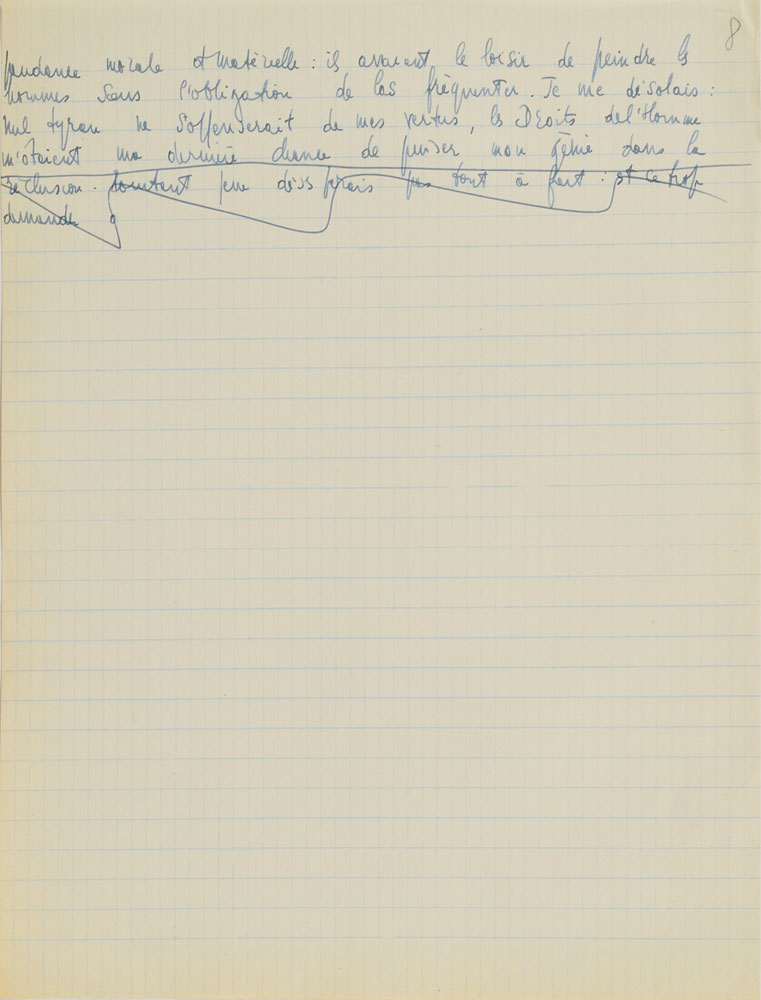 8
pendance morale et matérielle : ils avaient le loisir de peindre les
hommes sans l'obligation de les fréquenter. Je me désolais :
nul tyran ne s'offenserait de mes vertus, les Droits de l'Homme
m'ôtaient ma dernière chance de puiser mon génie dans la
réclusion. pourtant je ne désespérais pas tout à fait : est ce trop
demander q